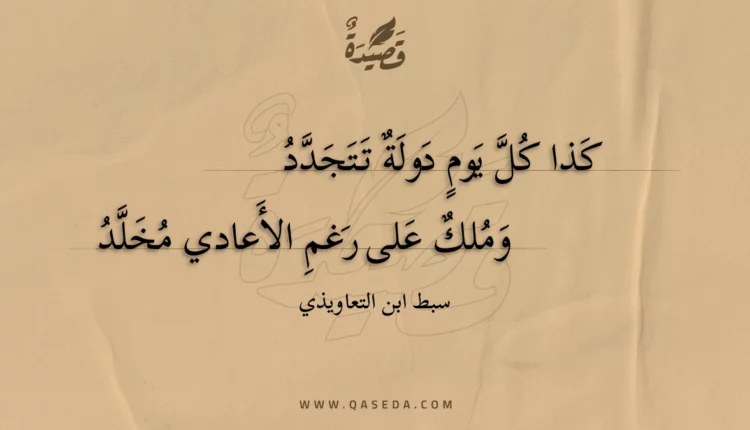 قَصِيدَةٌ
كَذا كُلَّ يَومٍ دَولَةٌ تَتَجَدَّدُ
وَمُلكٌ عَلى رَغمِ الأَعادي مُخَلَّدُ
سبط ابن التعاويذي
WWW.QASEDA.COM